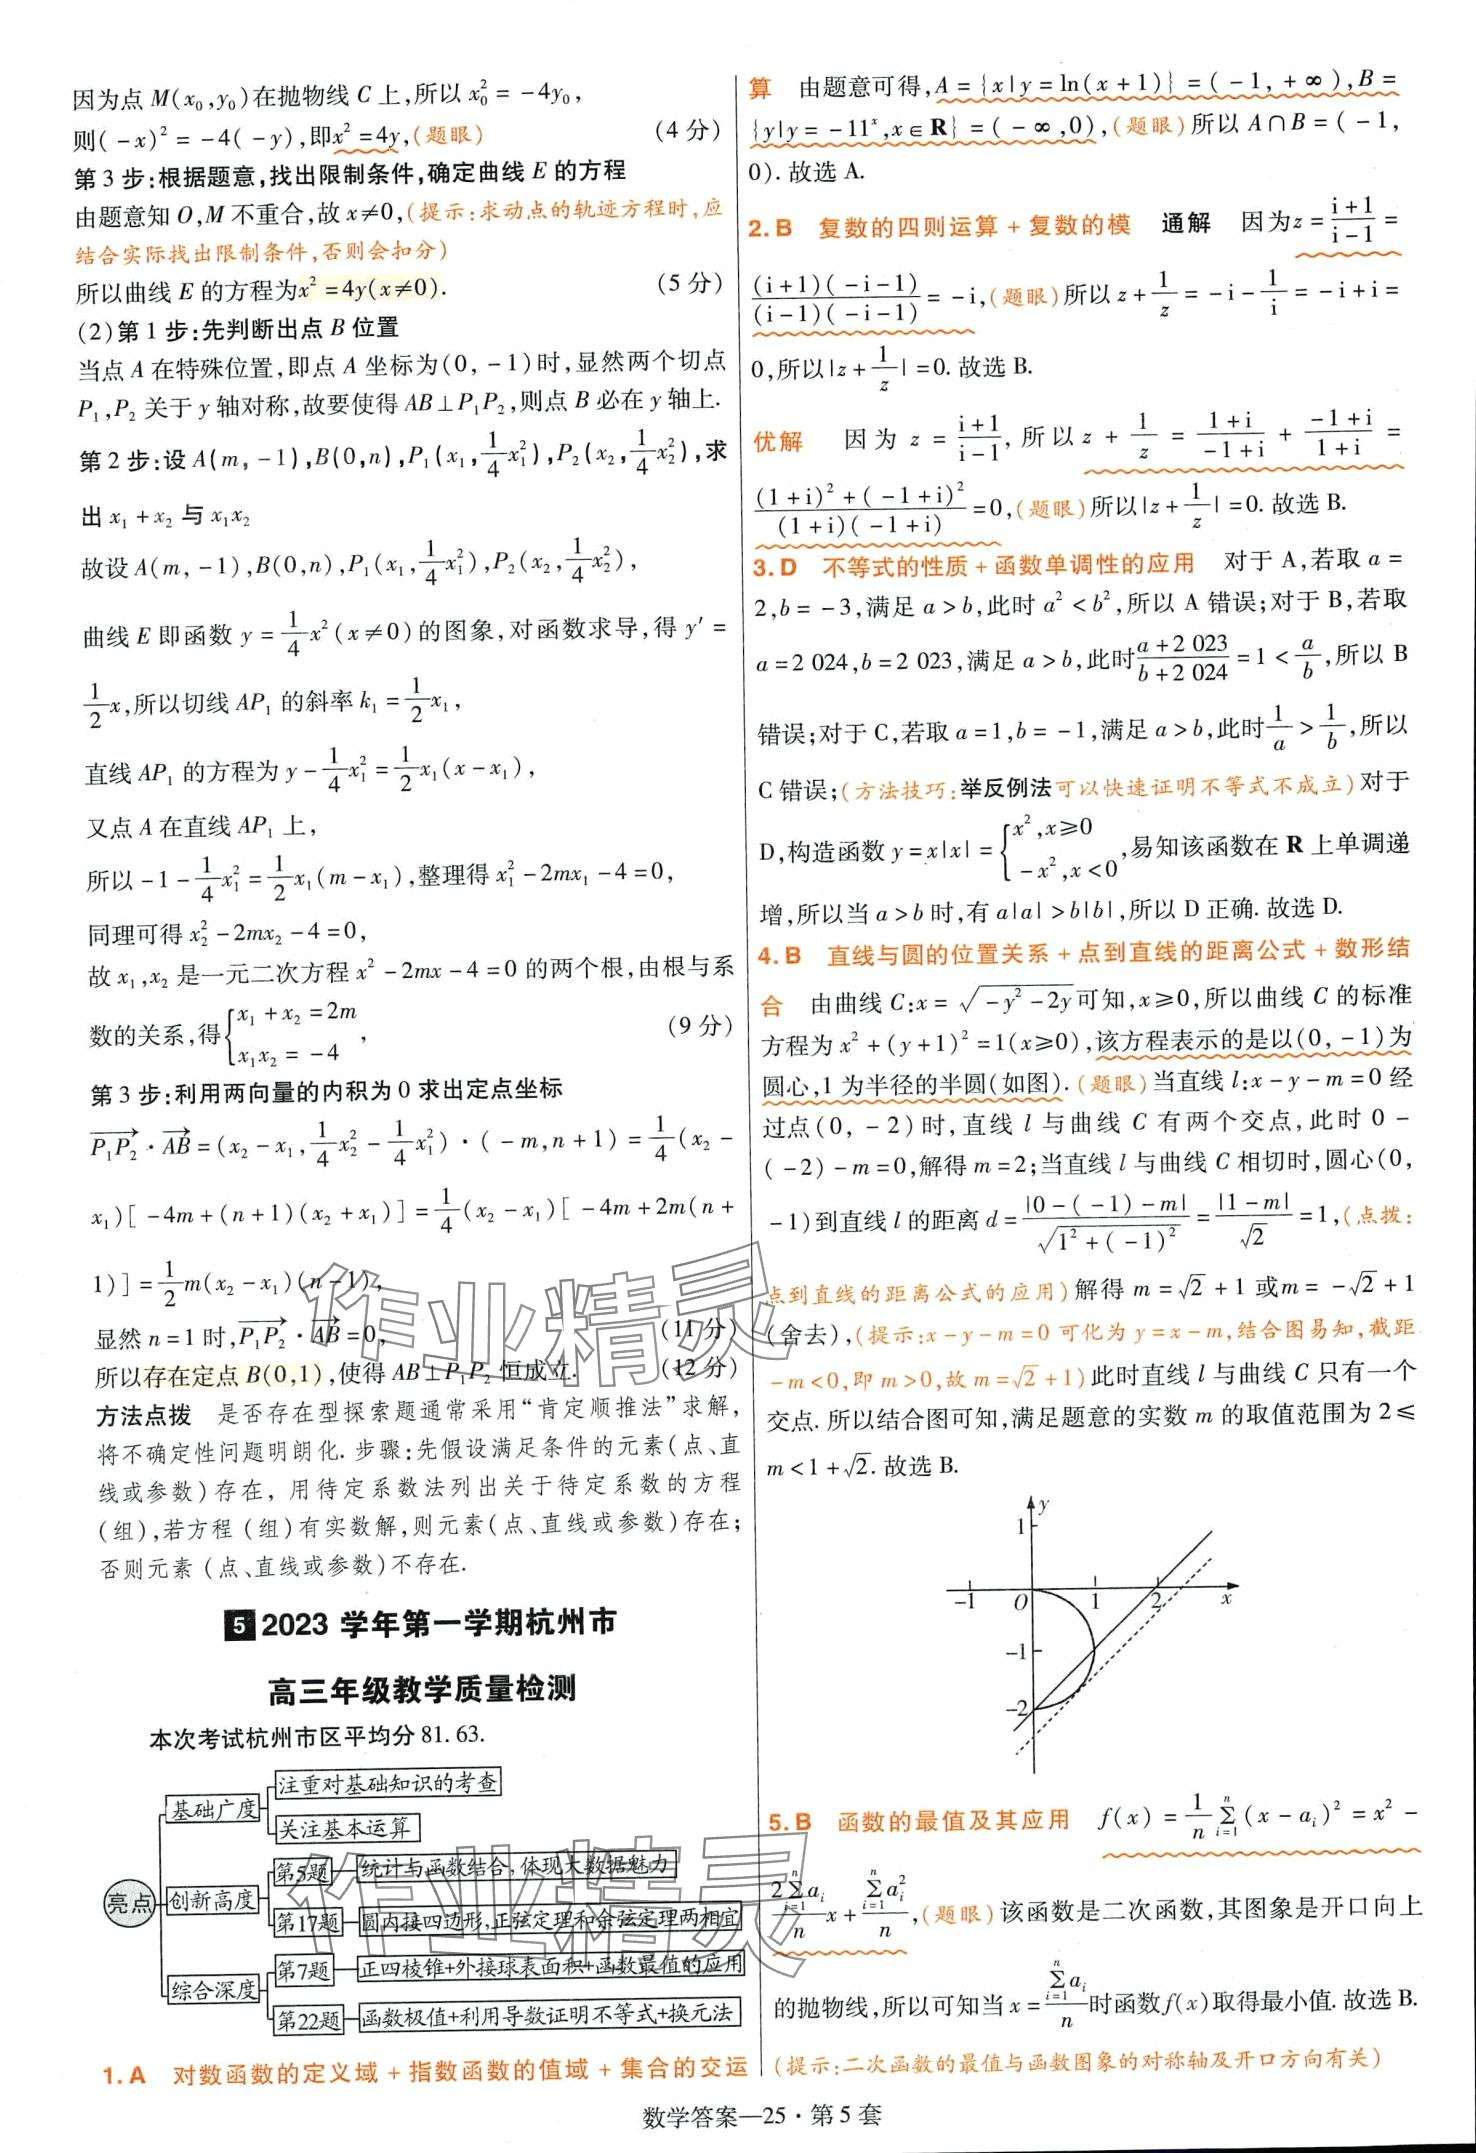 因为点 M(x₀,y₀)在抛物线 C 上,所以 x₀² = -4y₀,
则(-x)² = -4(-y),即x² = 4y,(题眼) (4 分)
第 3 步:根据题意,找出限制条件,确定曲线 E 的方程
由题意知 O,M 不重合,故 x≠0,(提示:求动点的轨迹方程时,应
结合实际找出限制条件,否则会扣分)
所以曲线 E 的方程为x² = 4y(x≠0). (5 分)
(2)第 1 步:先判断出点 B 位置
当点 A 在特殊位置,即点 A 坐标为(0,-1)时,显然两个切点
P₁,P₂ 关于 y 轴对称,故要使得 AB⊥P₁P₂,则点 B 必在 y 轴上.
第 2 步:设 A(m,-1),B(0,n),P₁(x₁,1/4x₁²),P₂(x₂,1/4x₂²),求
出 x₁+x₂ 与 x₁x₂
故设 A(m,-1),B(0,n),P₁(x₁,1/4x₁²),P₂(x₂,1/4x₂²),
曲线 E 即函数 y = 1/4x²(x≠0)的图象,对函数求导,得 y′ =
1/2x,所以切线 AP₁ 的斜率 k₁ = 1/2x₁,
直线 AP₁ 的方程为 y - 1/4x₁² = 1/2x₁(x-x₁),
又点 A 在直线 AP₁ 上,
所以 -1 - 1/4x₁² = 1/2x₁(m-x₁),整理得 x₁² - 2mx₁ - 4 = 0,
同理可得 x₂² - 2mx₂ - 4 = 0,
故 x₁,x₂ 是一元二次方程 x² - 2mx - 4 = 0 的两个根,由根与系
数的关系,得{x₁ + x₂ = 2m
x₁x₂ = -4 , (9 分)
第 3 步:利用两向量的内积为 0 求出定点坐标
P₁P₂→·AB→ = (x₂-x₁,1/4x₂² - 1/4x₁²)·(-m,n+1) = 1/4(x₂-
x₁)[-4m+(n+1)(x₂+x₁)] = 1/4(x₂-x₁)[-4m+2m(n+
1)] = 1/2m(x₂-x₁)(n-1),
显然 n = 1 时,P₁P₂→·AB→ = 0, (11 分)
所以存在定点 B(0,1),使得 AB⊥P₁P₂ 恒成立. (12 分)
方法点拨 是否存在型探索题通常采用“肯定顺推法”求解,
将不确定性问题明朗化. 步骤:先假设满足条件的元素(点、直
线或参数)存在, 用待定系数法列出关于待定系数的方程
(组),若方程 (组)有实数解,则元素(点、直线或参数)存在;
否则元素 (点、直线或参数)不存在.
5 2023 学年第一学期杭州市
高三年级教学质量检测
本次考试杭州市区平均分 81.63.
亮点
基础广度
注重对基础知识的考查
关注基本运算
创新高度
第5题 统计与函数结合,体现大数据魅力
第17题 圆内接四边形,正弦定理和余弦定理两相宜
综合深度
第7题 正四棱锥+外接球表面积+函数最值的应用
第22题 函数极值+利用导数证明不等式+换元法
1. A 对数函数的定义域 + 指数函数的值域 + 集合的交运
算 由题意可得,A = {x|y = ln(x+1)} = (-1,+∞),B =
{y|y = -11ˣ,x∈R} = (-∞,0),(题眼)所以 A∩B = (-1,
0). 故选 A.
2. B 复数的四则运算 + 复数的模 通解 因为z = (i+1)/(i-1) =
(i+1)(-i-1)/(i-1)(-i-1) = -i,(题眼)所以 z + 1/z = -i - 1/i = -i+i =
0,所以|z + 1/z| = 0. 故选 B.
优解 因为 z = (i+1)/(i-1), 所以 z + 1/z = (1+i)/(-1+i) + (-1+i)/(1+i) =
((1+i)²+(-1+i)²)/((1+i)(-1+i)) = 0,(题眼)所以|z + 1/z| = 0. 故选 B.
3. D 不等式的性质 + 函数单调性的应用 对于 A,若取 a =
2,b = -3,满足 a>b,此时 a²<b²,所以 A 错误;对于 B,若取
a = 2 024,b = 2 023,满足 a>b,此时(a+2 023)/(b+2 024) = 1 < a/b,所以 B
错误;对于 C,若取 a = 1,b = -1,满足 a>b,此时1/a > 1/b,所以
C 错误;(方法技巧:举反例法可以快速证明不等式不成立)对于
D,构造函数 y = x|x| = {x²,x≥0
-x²,x<0 ,易知该函数在 R 上单调递
增,所以当 a>b 时,有 a|a|>b|b|,所以 D 正确. 故选 D.
4. B 直线与圆的位置关系 + 点到直线的距离公式 + 数形结
合 由曲线 C:x = √(-y²-2y)可知,x≥0,所以曲线 C 的标准
方程为 x²+(y+1)² = 1(x≥0),该方程表示的是以(0,-1)为
圆心,1 为半径的半圆(如图).(题眼)当直线 l:x-y-m = 0 经
过点(0,-2)时,直线 l 与曲线 C 有两个交点,此时 0 -
(-2)-m = 0,解得 m = 2;当直线 l 与曲线 C 相切时,圆心(0,
-1)到直线 l 的距离 d = |0-(-1)-m|/√(1²+(-1)²) = |1-m|/√2 = 1,(点拨:
点到直线的距离公式的应用)解得 m = √2 + 1 或m = -√2 + 1
(舍去),(提示:x-y-m = 0 可化为 y = x-m,结合图易知,截距
-m<0,即 m>0,故 m = √2+1)此时直线 l 与曲线 C 只有一个
交点. 所以结合图可知,满足题意的实数 m 的取值范围为 2≤
m<1+√2. 故选 B.
y
1
-1 O 1 2 x
-1
-2
5. B 函数的最值及其应用 f(x) = 1/n ∑ⁿᵢ₌₁(x-aᵢ)² = x² -
(2∑ⁿᵢ₌₁aᵢ)/n x + (∑ⁿᵢ₌₁aᵢ²)/n,(题眼)该函数是二次函数,其图象是开口向上
的抛物线,所以可知当 x = (∑ⁿᵢ₌₁aᵢ)/n时函数f(x)取得最小值. 故选 B.
(提示:二次函数的最值与函数图象的对称轴及开口方向有关)
数学答案—25 · 第 5 套
作业精灵
作业精灵